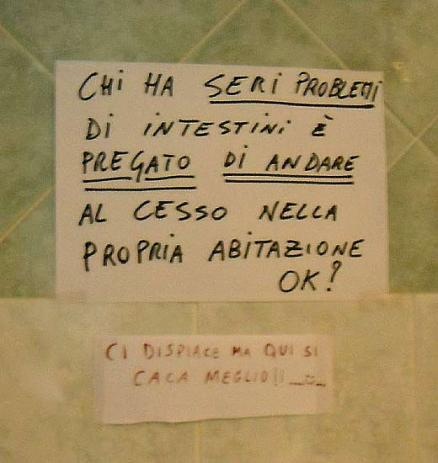 CHI HA SERI PROBLEMI
DI INTESTINI È
PREGATO DI ANDARE
AL CESSO NELLA
PROPRIA ABITAZIONE
OK?
CI DISPIACE MA QUI SI
CACA MEGLIO!!